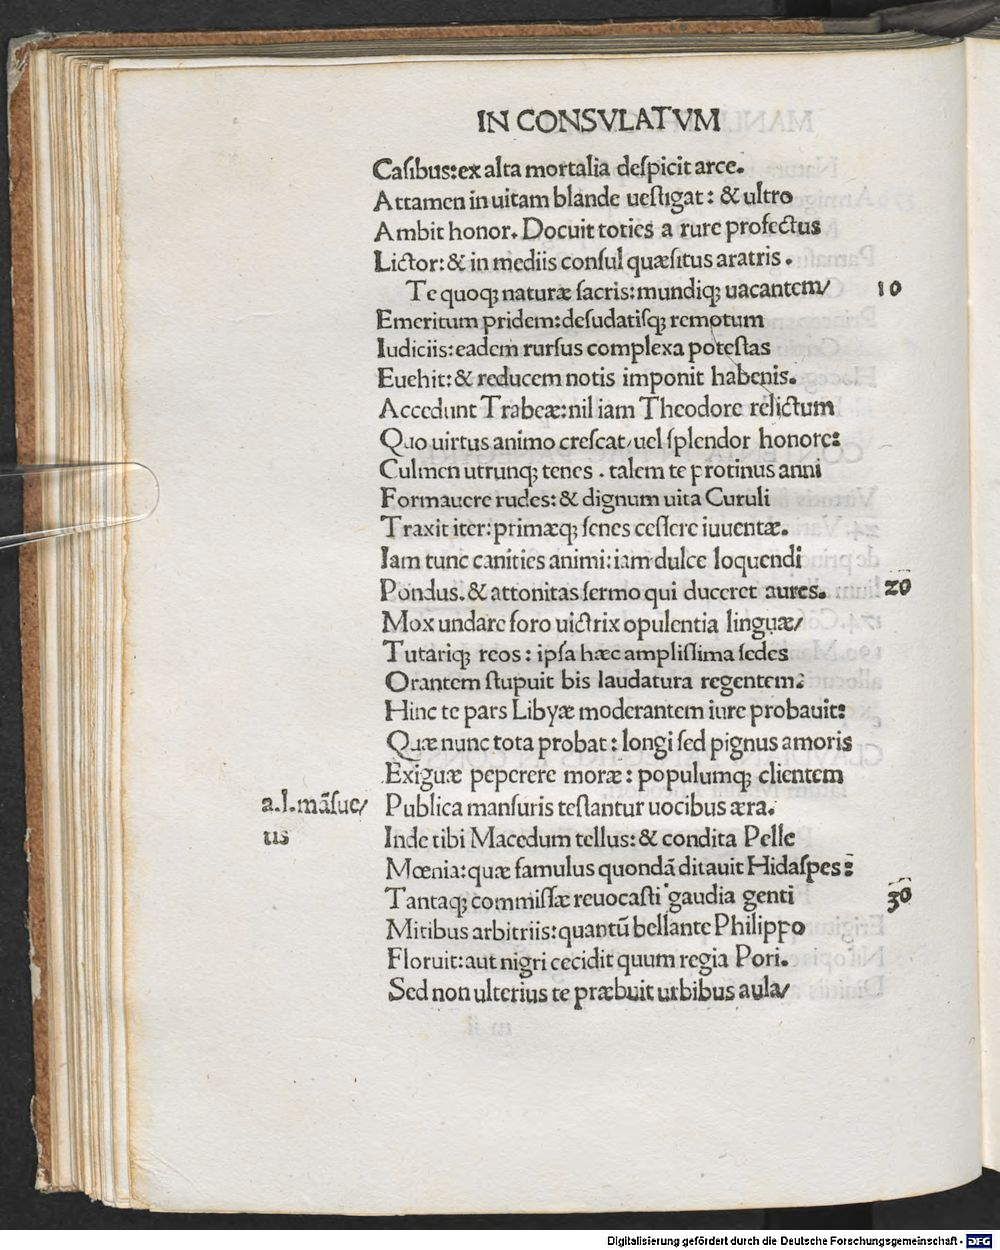 IN CONSVLATVM
Caſibus:ex alta mortalia deſpicit arce.
Attamen in uitam blande ueſtigat: & ultro
Ambit honor. Docuit toties a rure profectus
Lictor:& in mediis conſul quæſitus aratris.
Te quoqꝫ naturæ ſacris:mundiqꝫ uacantem/ 10
Emeritum pridem:deſudatiſqꝫ remotum
Iudiciis:eadem rurſus complexa poteſtas
Euehit:& reducem notis imponit habenis.
Accedunt Trabeæ:nil iam Theodore relictum
Quo uirtus animo creſcat/uel ſplendor honore:
Culmen utrunqꝫ tenes. talem te protinus anni
Formauere rudes:& dignum uita Curuli
Traxit iter:primæqꝫ ſenes ceſſere iuuentæ.
Iam tunc canities animi:iam dulce loquendi
Pondus.& attonitas ſermo qui duceret aures. 20
Mox undare foro uictrix opulentia linguæ/
Tutariqꝫ reos: ipſa hæc ampliſſima ſedes
Orantem ſtupuit bis laudatura regentem:
Hinc te pars Libyæ moderantem iure probauit:
Quæ nunc tota probat: longi ſed pignus amoris
Exiguæ peperere moræ: populumqꝫ clientem
a.l.māſue/ Publica manſuris teſtantur uocibus æra.
tis Inde tibi Macedum tellus:& condita Pelle
Mœnia:quæ famulus quondā ditauit Hidaſpes:
Tantaqꝫ commiſſæ reuocaſti gaudia genti 30
Mitibus arbitriis:quantū bellante Philippo
Floruit:aut nigri cecidit quum regia Pori.
Sed non ulterius te præbuit urbibus aula/
Digitalisierung gefördert durch die Deutsche Forschungsgemeinschaft - DFG